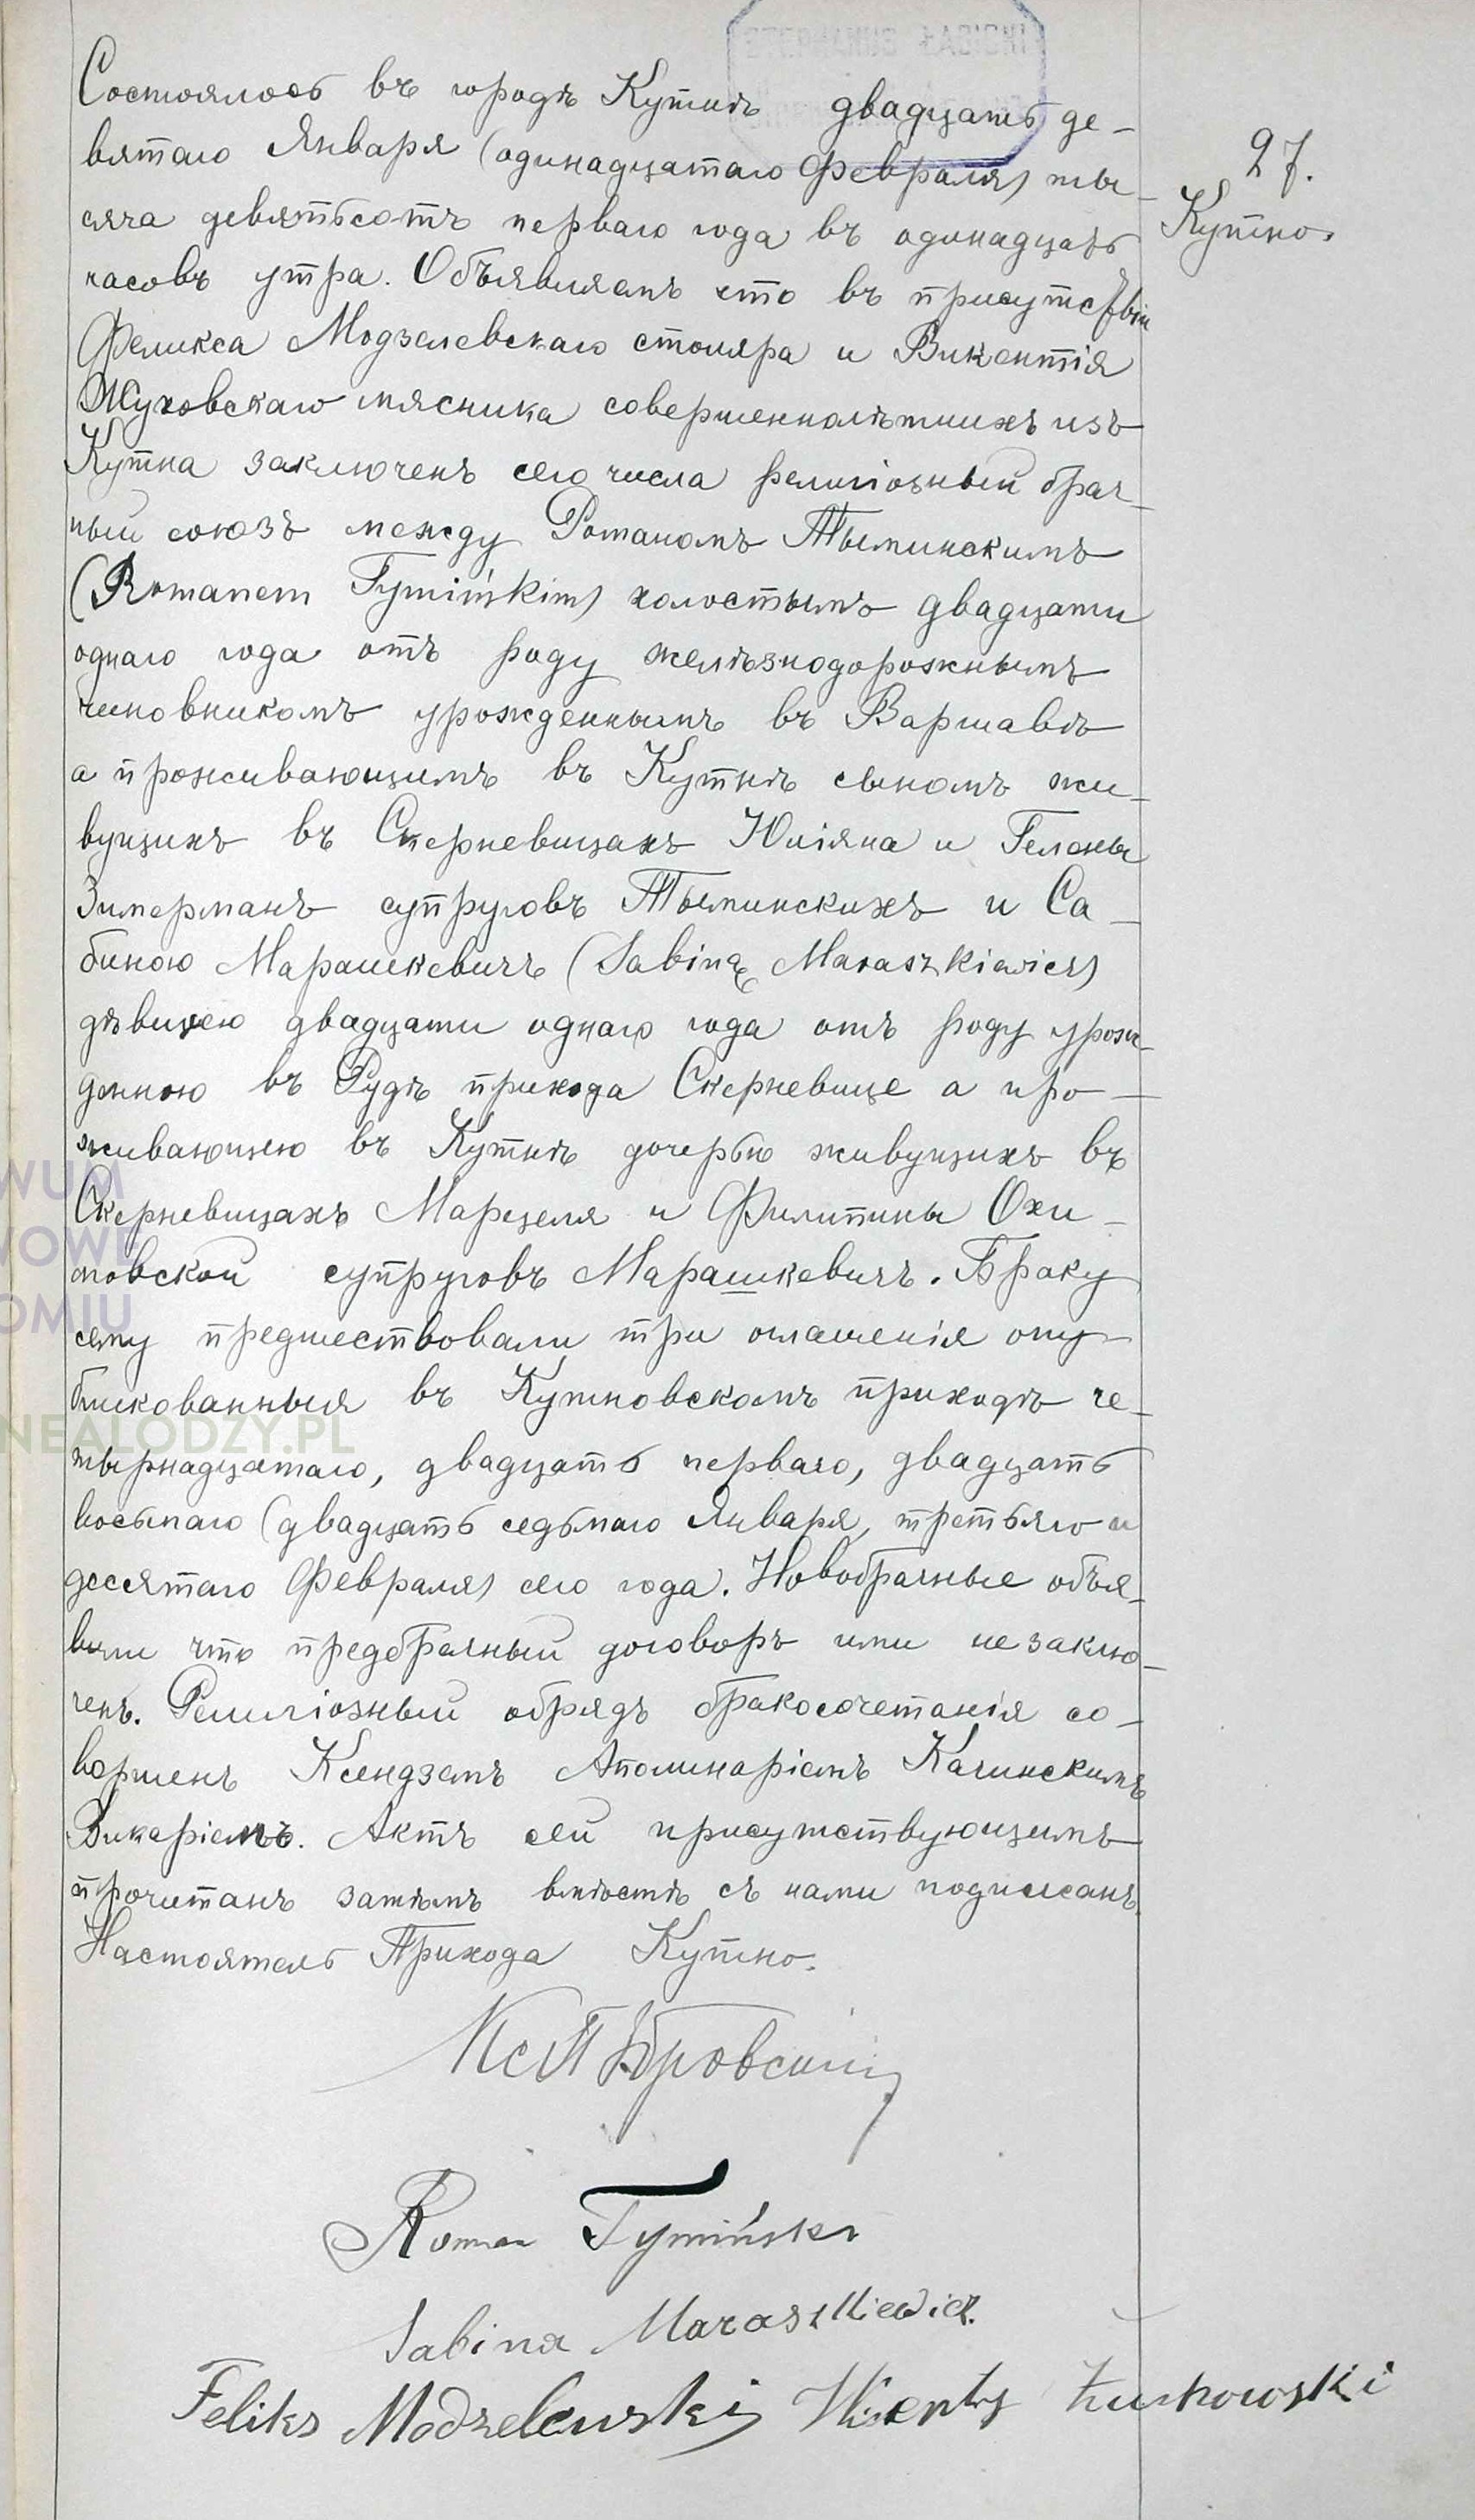 27.
Кутно.
Состоялось въ городѣ Кутнѣ двадцать де-
вятаго Января (одинадцатаго Февраля) ты-
сяча девятьсотъ перваго года въ одинадцать
часовъ утра. Объявляемъ что въ присутствіи
Феликса Модзелевскаго столяра и Викентія
Жуховскаго мясника совершеннолѣтнихъ изъ
Кутна заключенъ сего числа религіозный брач-
ный союзъ между Романомъ Тыминскимъ
(Romanem Tymińskim) холостымъ двадцати
однаго года отъ роду желѣзнодорожнымъ
чиновникомъ урожденнымъ въ Варшавѣ
а проживающимъ въ Кутнѣ сыномъ жи-
вущихъ въ Скерневицахъ Юліяна и Гелены
Зимерманъ супруговъ Тыминскихъ и Са-
биною Марашкевичъ (Sabiną Maraszkiewicz)
дѣвицею двадцати однаго года отъ роду урож-
денною въ Рудѣ прихода Скерневице а про-
живающею въ Кутнѣ дочерью живущихъ въ
Скерневицахъ Марцеля и Филипины Охи-
мовской супруговъ Марашкевичъ. Браку
сему предшествовали три оглашенія опу-
бликованныя въ Кутновскомъ приходѣ че-
тырнадцатаго, двадцать перваго, двадцать
восьмаго (двадцать седьмаго Января, третьяго и
десятаго Февраля) сего года. Новобрачные объя-
вили что предбрачный договоръ ими незаклю-
ченъ. Религіозный обрядъ бракосочетанія со-
вершенъ Ксендземъ Аполинаріемъ Качинскимъ
Викаріемъ. Актъ сей присутствующимъ
прочитанъ затѣмъ вмѣстѣ съ нами подписанъ.
Настоятель Прихода Кутно.
Roman Tymiński
Sabina Maraszkiewicz.
Feliks Modzelewski Wincenty Żuchowski
WUM
WOWE
OMIU
NEALODZY.PL